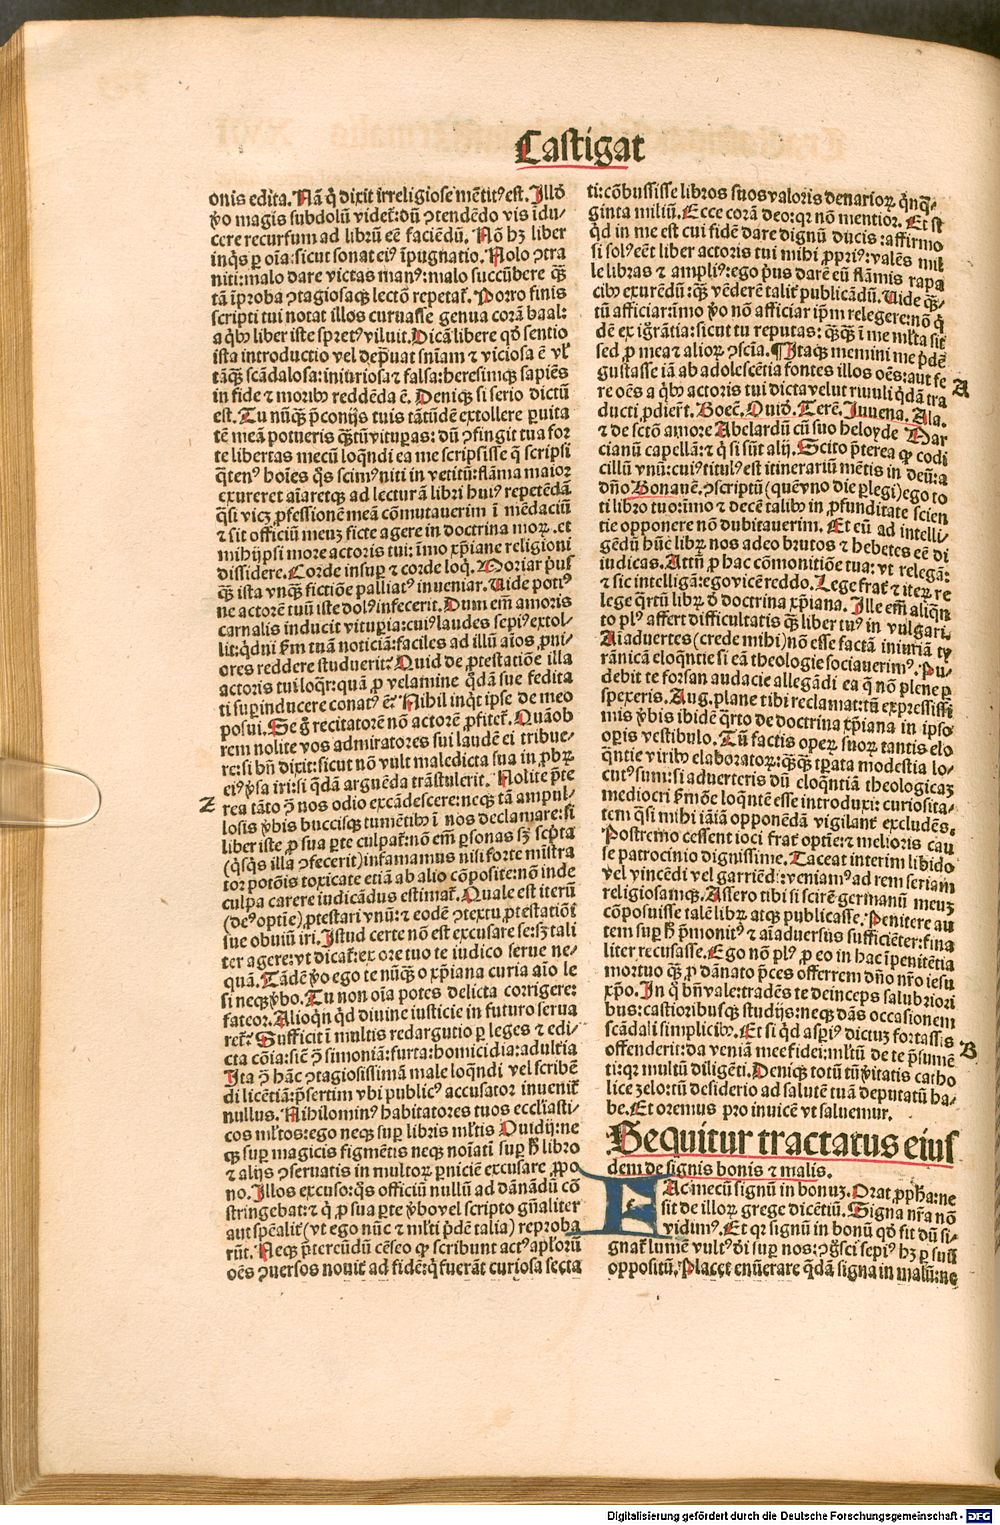 Castigat
onis edita. Nã q̃ dixit irreligiose mẽtitꝰ est. Illđ
ꝟo magis subdolũ videt᷑: dũ ꝯtendẽdo vis ĩdu/
cere recursum ad librũ eẽ faciẽdũ. Nõ hꝫ liber
inq̃s ꝑ oĩa: sicut sonat eiꝰ ĩpugnatio. Nolo ꝯtra
niti: malo dare victas manꝰ: malo succũbere q̃ꝫ
tã ĩproba ꝯtagiosaqꝫ lectõ repetat᷑. Porro finis
scripti tui notat illos curuasse genua corã baal:
a q̃bꝰ liber iste spretꝰ viluit. Dicã libere qđ sentio
ista introductio vel dep̃uat sn̄iam ⁊ viciosa ẽ vl᷑
tãq̃ꝫ scãdalosa: iniuriosa ⁊ falsa: heresimqꝫ sapiẽs
in fide ⁊ moribꝰ reddẽda ẽ. Deniqꝫ si serio dictũ
est. Tu nũq̃ꝫ p̃conijs tuis tãtũdẽ extollere ꝑ vita
tẽ meã potueris q̃ꝫtũ vituꝑas: dũ ꝯfingit tua for
te libertas mecũ loq̃ndi ea me scripsisse q̃ scripsi
q̃tenꝰ hoĩes q̃s scimꝰ niti in vetitũ: flãma maior
exureret aĩaretqꝫ ad lecturã libri huiꝰ repetẽdã
q̃si vicꝫ ꝓfessionẽ meã cõmutauerim ĩ mẽdaciũ
⁊ sit officiũ meuꝫ ficte agere in doctrina moꝝ. et
mihijpsi more actoris tui: ĩmo xp̃iane religioni
dissidere. Corde insuꝑ ⁊ corde loq̃. Moriar p̃usꝰ
q̃ꝫ ista vnq̃ꝫ fictiõe palliatꝰ inueniar. Uide potiꝰ
ne actorẽ tuũ iste dolꝰ infecerit. Dum em̃ amoris
carnalis inducit vituꝑia: cuiꝰ laudes sepiꝰ extol/
lit: q̃dni ẜm tuã noticiã: faciles ad illũ aĩos ꝓni/
ores reddere studuerit? Quid de ꝓtestatiõe illa
actoris tui loq̃r: quã ꝓ velamine q̃dã sue fedita
ti suꝑinducere conatꝰ ẽ? Nihil inq̃t ipse de meo
posui. Se g̃ recitatorẽ nõ actorẽ ꝓfitet᷑. Quãob
rem nolite vos admiratores sui laudẽ ei tribue/
re: si bñ dixit: sicut nõ vult maledicta sua in ꝓbꝝ
eiꝰ ꝟsa iri: si q̃dã arguẽda trãstulerit. Nolite p̃te
rea tãto ꝯ̃ nos odio excãdescere: neqꝫ tã ampul/
losis ꝟbis buccisqꝫ tumẽtibꝰ ĩ nos declamare: si
liber iste ꝓ sua ꝑte culpat᷑: nõ em̃ ꝑsonas sꝫ scp̃ta
(q̃sq̃s illa ꝯfecerit) infamamus nisi forte mĩstra
tor potõis toxicate etiã ab alio cõposite: nõ inde
culpa carere iudicãdus estimat᷑. Quale est iterũ
(deꝰ optie) ꝓtestari vnũ: ⁊ eodẽ ꝯtextu ꝓtestatiõĩ
sue obuiũ iri. Istud certe nõ est excusare se: sꝫ tali
ter agere: vt dicat᷑: ex ore tuo te iudico serue ne/
quã. Tãdẽ ꝟo ego te nũq̃ꝫ o xp̃iana curia aĩo le
si neqꝫ ꝟbo. Tu non oĩa potes delicta corrigere:
fateor. Alioq̃n qđ diuine iusticie in futuro serua
ret᷑? Sufficit ĩ multis redargutio ꝑ leges ⁊ edi/
cta cõia: siẽ ꝯ̃ simoniã: furta: homicidia: adult̃ia
Ita ꝯ̃ hãc ꝯtagiosissimã male loq̃ndi vel scribẽ
di licẽtiã: p̃sertim vbi publicꝰ accusator inuenit᷑
nullus. Nihilominꝰ habitatores tuos eccl̃iasti/
cos ml̃tos: ego neqꝫ suꝑ libris ml̃tis Ouidij: ne
qꝫ suꝑ magicis figmẽtis neqꝫ noĩati suꝑ h̃ libro
⁊ alijs ꝯseruatis in multoꝝ ꝑniciẽ excusare ꝓpo
no. Illos excuso: q̃s officiũ nullũ ad dãnãdũ cõ
stringebat: ⁊ q̃ ꝓ sua ꝑte ꝟbo vel scripto gñaliter
aut spẽalit᷑ (vt ego nũc ⁊ ml̃ti p̃dẽ talia) reproba
rũt. Neqꝫ p̃tereũdũ cẽseo ꝙ scribunt actꝰ apl̃orũ
oẽs ꝯuersos nouit᷑ ad fidẽ: q̃ fuerãt curiosa secta
Z
ti: cõbussisse libros suos valoris denarioꝝ q̃nq̃/
ginta miliũ. Ecce corã deo: qꝛ nõ mentior. Et st̃
qđ in me est cui fidẽ dare dignũ ducis: affirmo
si solꝰ eẽt liber actoris tui mihi ꝓpriꝰ: valẽs mil
le libras ⁊ ampliꝰ: ego p̃us darẽ eũ flãmis rapa
cibꝰ exurẽdũ: q̃ꝫ vẽderẽ talit᷑ publicãdũ. Uide q̃ꝫ/
tũ afficiar: ĩmo ꝟo nõ afficiar ip̃m relegere: nõ q̃
dẽ ex ig̃rãtia: sicut tu reputas: q̃ꝫq̃ꝫ ĩ me ml̃ta sit
sed ꝓ mea ⁊ alioꝝ ꝯscĩa. ¶ Itaqꝫ memini me p̃dẽ
gustasse iã ab adolescẽtia fontes illos oẽs: aut fe
re oẽs a q̃bꝰ actoris tui dicta velut riuuli q̃dã tra
ducti ꝓdier̃t. Boeč. Ouiđ. Terẽ. Iuuena. Ala.
⁊ de sctõ amore Abelardũ cũ suo heloyde Mar
cianũ capellã: ⁊ q̃ si sũt alij. Scito p̃terea ꝙ codi
cillũ vnũ: cuiꝰ titulꝰ est itinerariũ mẽtis in deũ: a
dño Bonauẽ. ꝯscriptũ (quẽ vno die ꝑlegi) ego to
ti libro tuo: ĩmo ⁊ decẽ talibꝰ in ꝓfunditate scien
tie opponere nõ dubitauerim. Et eũ ad intelli/
gẽdũ hũc librꝝ nos adeo brutos ⁊ hebetes eẽ di
iudicas. Attñ ꝓ hac cõmonitiõe tua: vt relegã:
⁊ sic intelligã: ego vicẽ reddo. Lege frat᷑ ⁊ iteꝝ re
lege q̃rtũ librꝝ đ doctrina xp̃iana. Ille em̃ aliq̃n
to plꝰ affert difficultatis q̃ꝫ liber tuꝰ in vulgari.
Aĩaduertes (crede mihi) nõ esse factã iniuriã ty
rãnicã eloq̃ntie si eã theologie sociauerimꝰ. Pu/
debit te forsan audacie allegãdi ea q̃ nõ plene ꝑ
spexeris. Aug. plane tibi reclamat: tũ expressissi
mis ꝟbis ibidẽ q̃rto de doctrina xp̃iana in ipso
oꝑis vestibulo. Tũ factis opeꝝ suoꝝ tantis elo
q̃ntie viribꝰ elaboratoꝝ: q̃ꝫq̃ꝫ tꝑata modestia lo/
cutꝰ sum: si aduerteris dũ eloq̃ntiã theologicaꝫ
mediocri ẜmõe loq̃ntẽ esse introduxi: curiosita/
tem q̃si mihi iãiã opponẽdã vigilant᷑ excludẽs.
Postremo cessent ioci frat᷑ optie: ⁊ melioris cau
se patrocinio dignissime. Taceat interim libido
vel vincẽdi vel garriẽdi: veniamꝰ ad rem seriam
religiosamqꝫ. Assero tibi si scirẽ germanũ meuꝫ
cõposuisse talẽ librꝝ atqꝫ publicasse. Penitere au
tem suꝑ h̃ p̃monitꝰ ⁊ aĩaduersus sufficiẽter: fina
liter recusasse. Ego nõ plꝰ ꝓ eo in hac ĩpenitẽtia
mortuo q̃ꝫ ꝓ dãnato p̃ces offerrem dño nr̃o iesu
xp̃o. In q̃ bñ vale: tradẽs te deinceps salubriori
bus: castioribusqꝫ studijs: neqꝫ dãs occasionem
scãdali simplicibꝰ. Et si qđ asꝑiꝰ dictuꝫ fortassis
offenderit: da veniã mee fidei: ml̃tũ de te p̃sumẽ
ti: qꝛ multũ diligẽti. Deniqꝫ totũ tũ ꝟitatis catho
lice zelo: tũ desiderio ad salutẽ tuã deputatũ ha/
be. Et oremus pro inuicẽ vt saluemur.
A
B
Sequitur tractatus eius
dem de signis bonis ⁊ malis.
FAc mecũ signũ in bonuꝫ. Orat ꝓph̃a: ne
sit de illoꝝ grege dicẽtiũ. Signa nr̃a nõ
vidimꝰ. Et qꝛ signũ in bonũ qđ fit dũ si/
gnat᷑ lumẽ vultꝰ đi suꝑ nos: ꝯg̃sci sepiꝰ hꝫ ꝑ suũ
oppositũ. Placet enũerare q̃dã signa in malũ: ne
Digitalisierung gefördert durch die Deutsche Forschungsgemeinschaft - DFG